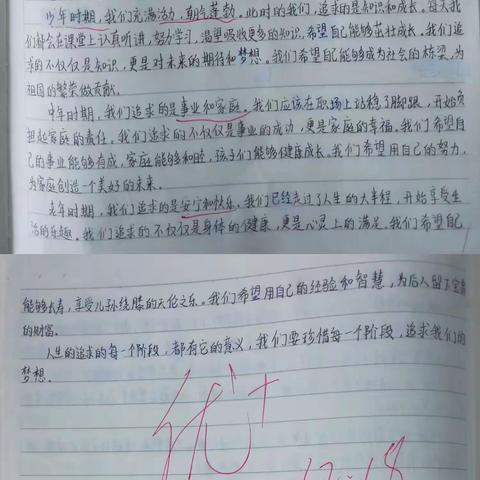 少年时期，我们充满活力，朝气蓬勃。此时的我们，追求的是知识和成长。每天我
们都会在课堂上认真听讲，努力学习，渴望吸收更多的知识，希望自己能够茁壮成长。我们追
求的不仅仅是知识，更是对未来的期待和梦想。我们希望自己能够成为社会的栋梁，为
祖国的繁荣做贡献。
中年时期，我们追求的是事业和家庭。我们应该在职场上站稳了脚跟，开始负
担起家庭的责任。我们追求的不仅仅是事业的成功，更是家庭的幸福。我们希望自
己的事业能够有成，家庭能够和睦，孩子们能够健康成长。我们希望用自己的努力，
为家庭创造一个美好的未来。
老年时期，我们追求的是安宁和快乐。我们已经走过了人生的大半程，开始享受生
活的乐趣。我们追求的不仅仅是身体的健康，更是心灵上的满足。我们希望自己
能够长寿，享受儿孙绕膝的天伦之乐。我们希望用自己的经验和智慧，为后人留下宝贵
的财富。
人生的追求的每一个阶段，都有它的意义，我们要珍惜每一个阶段，追求我们的
梦想。
优+
12.18